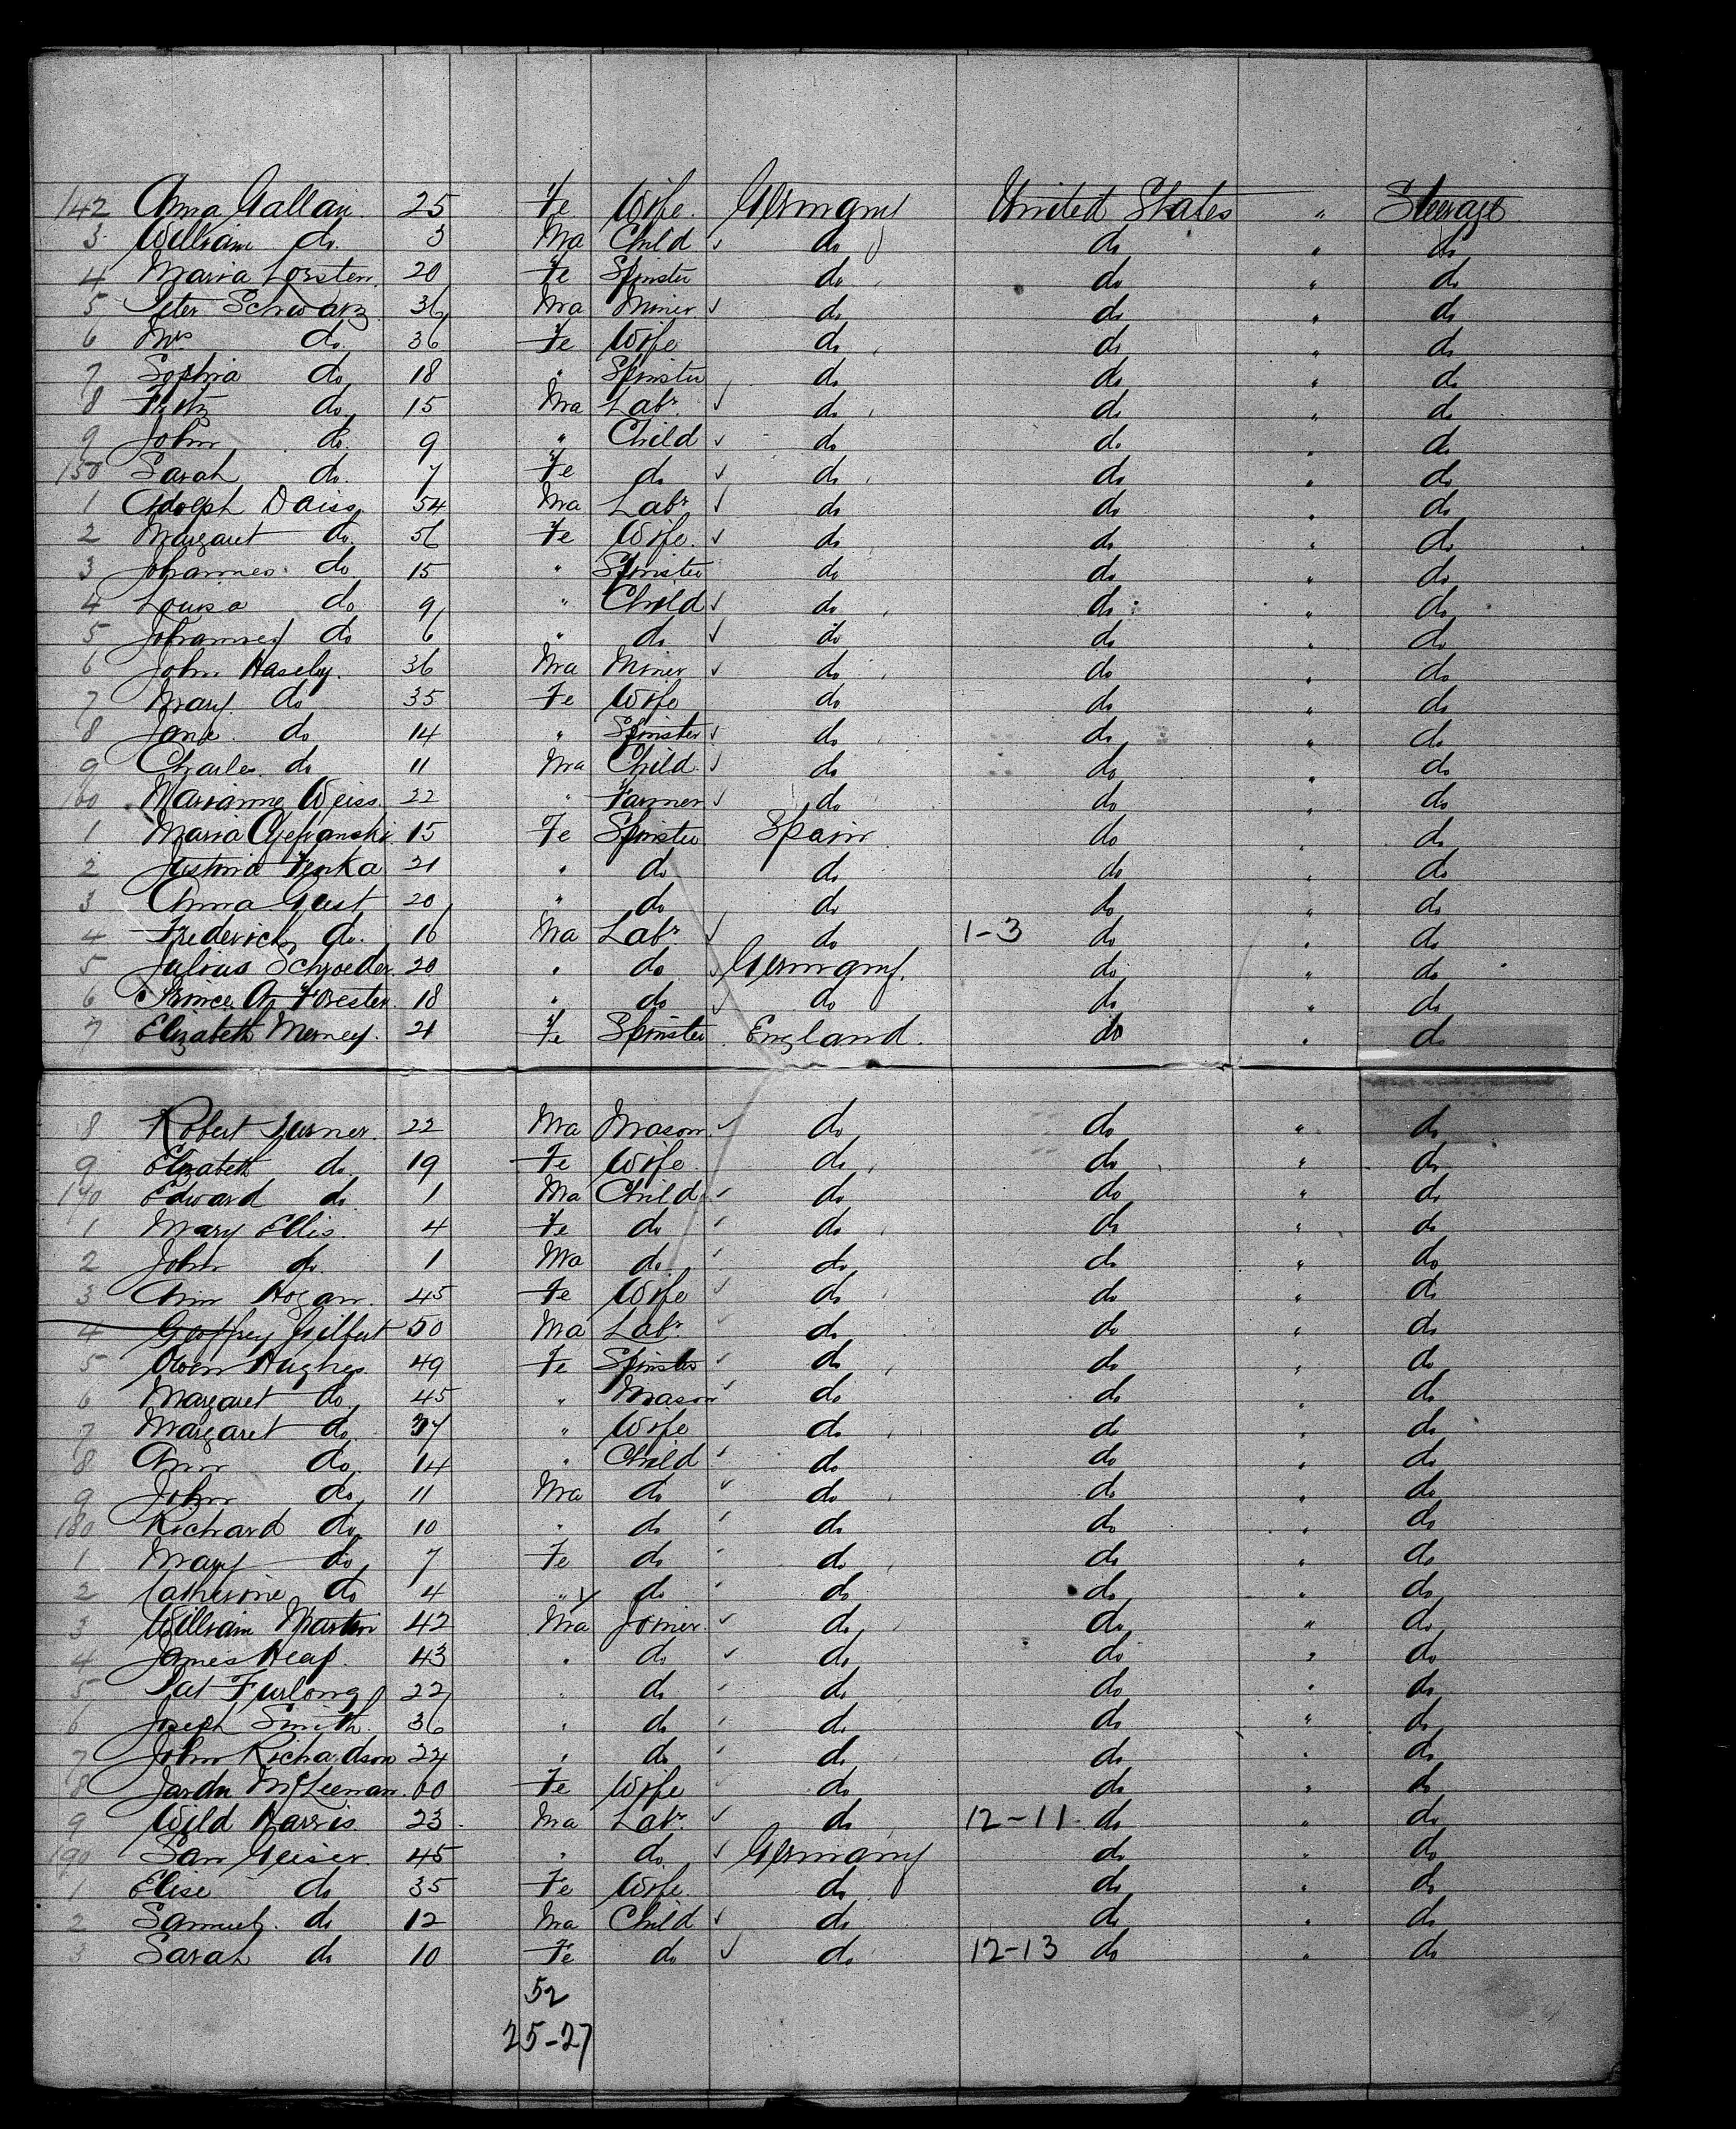 142 Anna Gallan 25 Fe Wife Germany United States " Steerage
3 William do 3 Ma Child ✓ do do " do
4 Maria 20 Fe Spinster do do " do
5 Peter Schwarz 36 Ma Miner ✓ do do " do
6 Mrs do 36 Fe Wife do do " do
7 Sophia do 18 " Spinster do do " do
8 Fritz do 15 Ma Labr ✓ do do " do
9 John do 9 " Child ✓ do do " do
150 Sarah do 7 Fe do ✓ do do " do
1 Adolph Daiss 54 Ma Labr ✓ do do " do
2 Margaret do 56 Fe Wife ✓ do do " do
3 Johannes do 15 " Spinster do do " do
4 Louisa do 9 " Child ✓ do do " do
5 Johannes do 6 " do ✓ do do " do
6 John Hasely 36 Ma Miner ✓ do do " do
7 Mary do 35 Fe Wife do do " do
8 Jane do 14 " Spinster ✓ do do " do
9 Charles do 11 Ma Child ✓ do do " do
160 Marianne Weiss 22 " Farmer ✓ do do " do
1 Maria 15 Fe Spinster Spain do " do
2 21 " do do do " do
3 Anna Gust 20 " do do do " do
4 Frederick do 16 Ma Labr ✓ do 1-3 do " do
5 Julius Schroeder 20 " do ✓ Germany do " do
6 Prince A Forester 18 " do ✓ do do " do
7 Elizabeth Merney 21 Fe Spinster England do " do
8 Robert Turner 22 Ma Mason ✓ do do " do
9 Elizabeth do 19 Fe Wife do do " do
170 Edward do 1 Ma Child ✓ do do " do
1 Mary Ellis 4 Fe do ✓ do do " do
2 John do 1 Ma do ✓ do do " do
3 Ann Hogan 45 Fe Wife ✓ do do " do
4 Geoffrey Gilbert 50 Ma Labr ✓ do do " do
5 Owen Hughes 49 Fe Spinster ✓ do do " do
6 Margaret do 45 " Mason ✓ do do " do
7 Margaret do 37 " Wife do do " do
8 Ann do 14 " Child ✓ do do " do
9 John do 11 Ma do ✓ do do " do
180 Richard do 10 " do ✓ do do " do
1 Mary do 7 Fe do ✓ do do " do
2 Catherine do 4 " do ✓ do do " do
3 William Martin 42 Ma Joiner ✓ do do " do
4 James Heap 43 " do ✓ do do " do
5 Pat Furlong 22 " do ✓ do do " do
6 Joseph Smith 36 " do ✓ do do " do
7 John Richardson 24 " do ✓ do do " do
8 McLeenan 60 Fe Wife ✓ do do " do
9 Wild Harris 23 Ma Labr ✓ do 12-11 do " do
190 San Geiser 45 " do ✓ Germany do " do
1 Elise do 35 Fe Wife do do " do
2 Samuel do 12 Ma Child ✓ do do " do
3 Sarah do 10 Fe do ✓ do 12-13 do " do
52
25-27